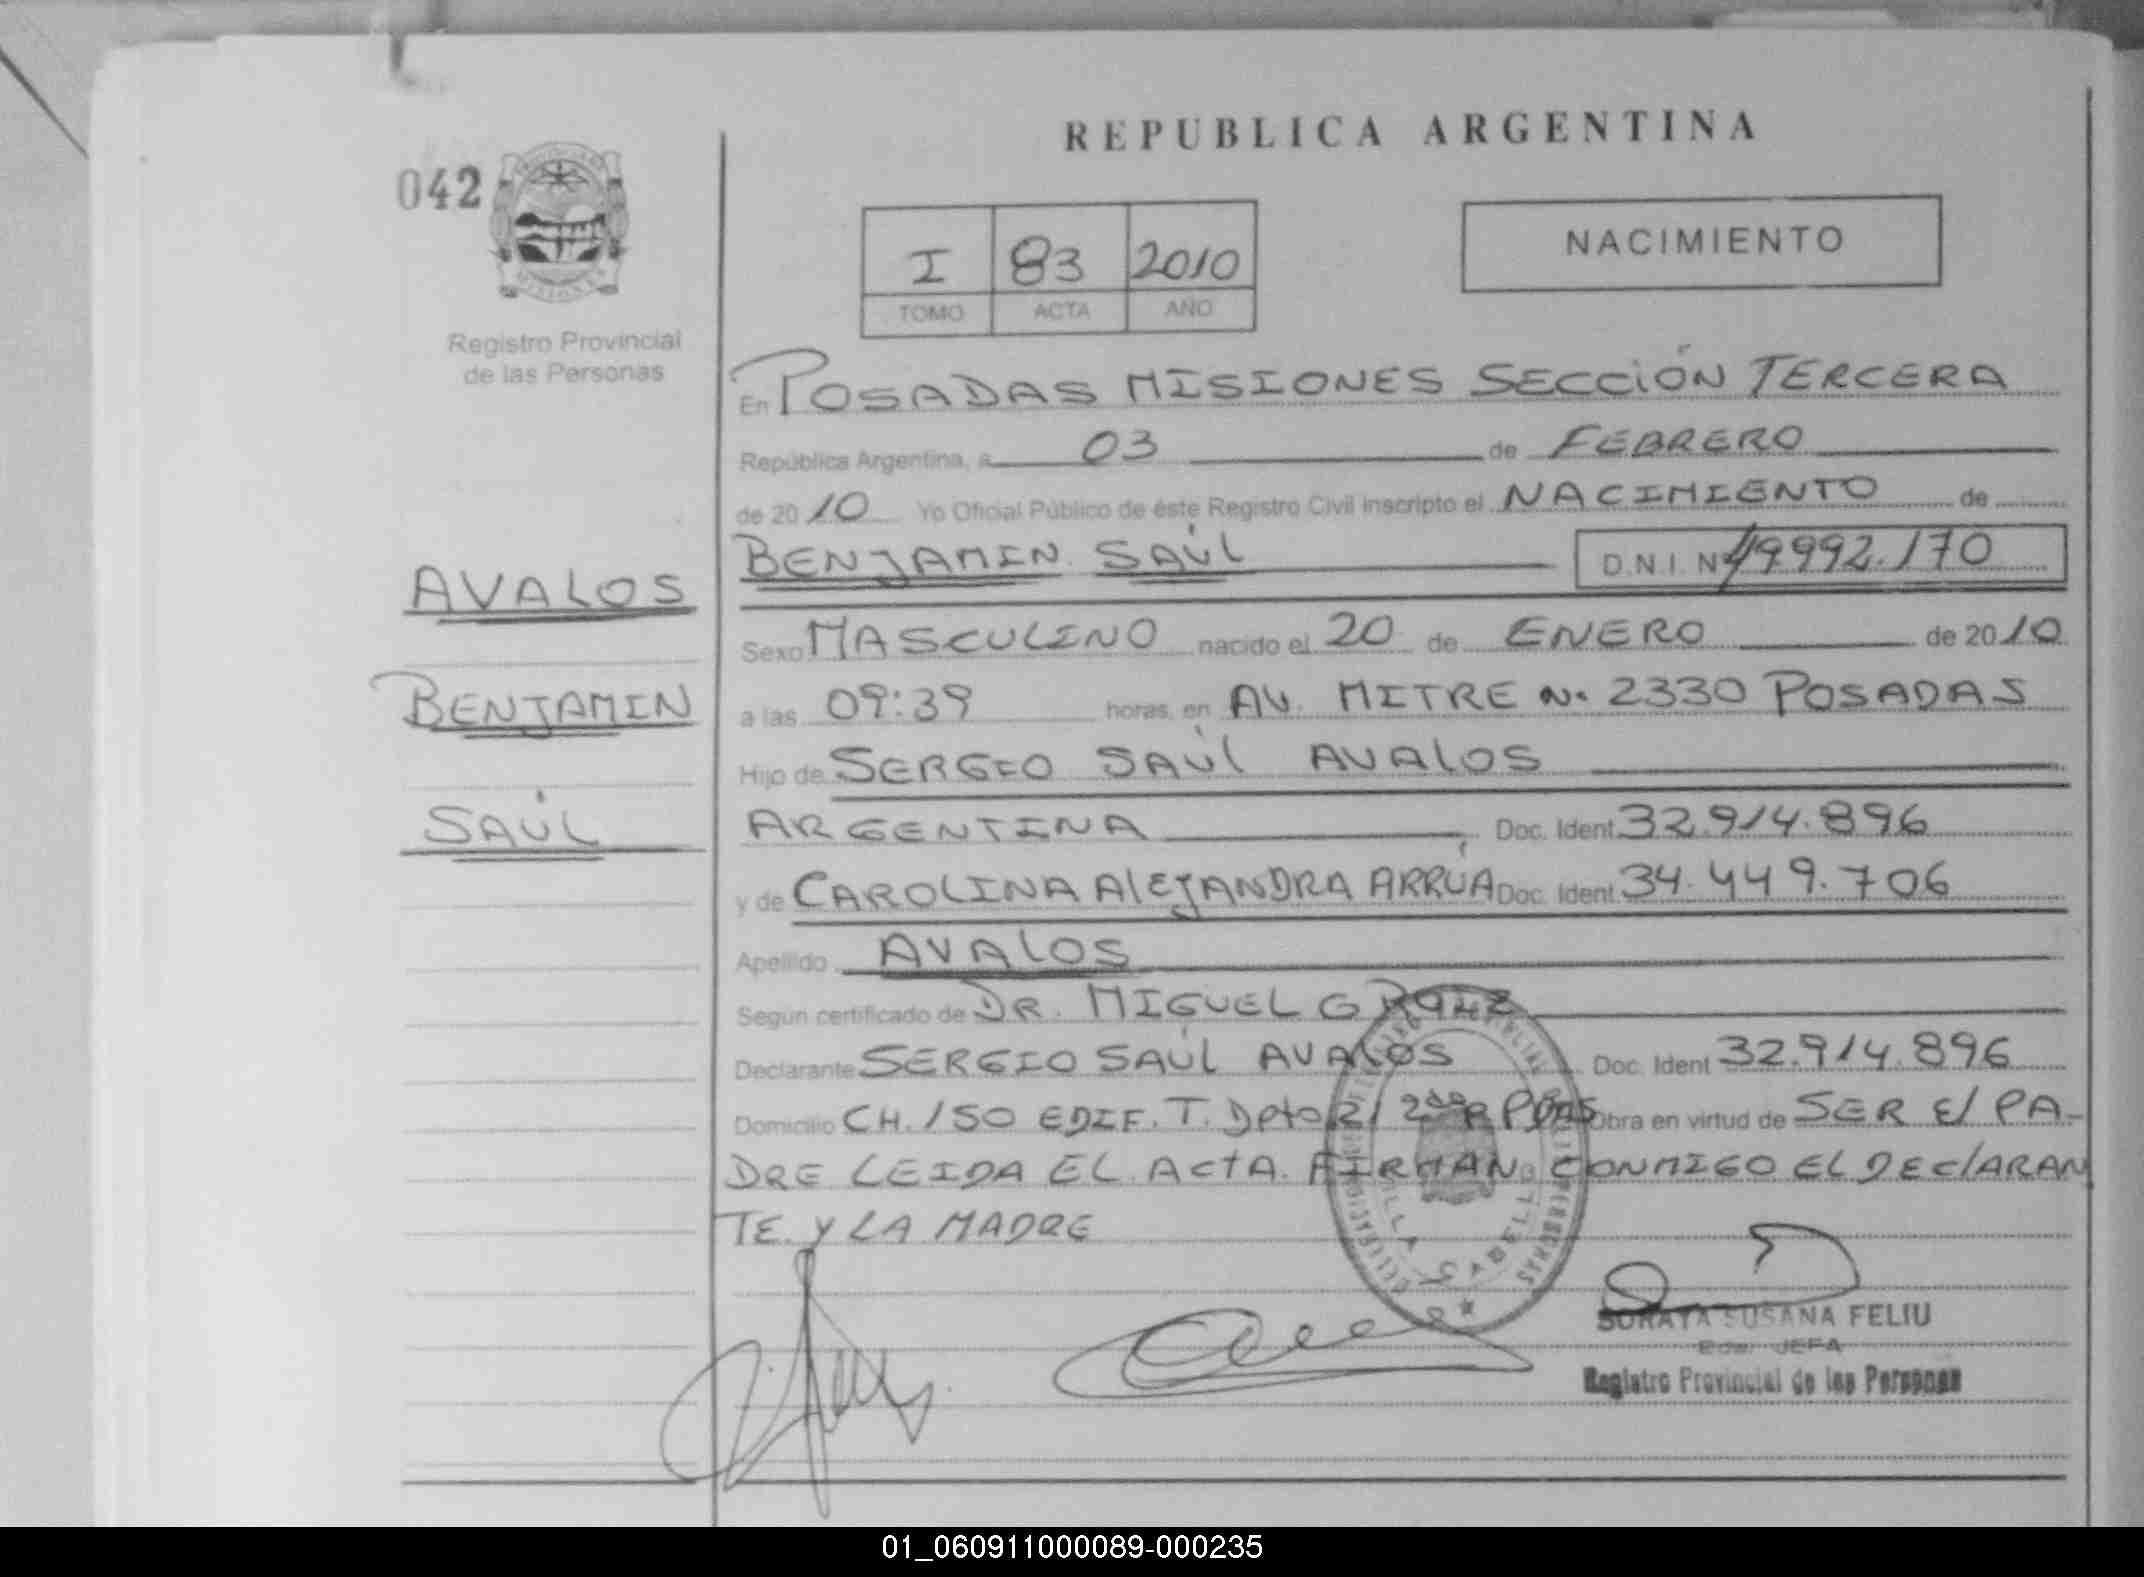 REPUBLICA ARGENTINA
042
NACIMIENTO
I 83 2010
TOMO ACTA AÑO
Registro Provincial
de las Personas
En POSADAS MISIONES SECCIÓN TERCERA
República Argentina, a 03 de FEBRERO
de 20 10 Yo Oficial Público de éste Registro Civil inscripto el NACIMIENTO de
BENJAMIN SAÚL D.N.I. Nº 49992.170
AVALOS
Sexo MASCULINO nacido el 20 de ENERO de 2010
BENJAMIN
a las 09:39 horas, en AV. MITRE N. 2330 POSADAS
Hijo de SERGIO SAÚL AVALOS
SAÚL
ARGENTINA Doc. Ident. 32.914.896
y de CAROLINA ALEJANDRA ARRÚA Doc. Ident. 34.449.706
Apellido AVALOS
Según certificado de DR. MIGUEL G
Declarante SERGIO SAÚL AVALOS Doc. Ident 32.914.896
Domicilio CH. 150 EDIF. T. Dpto Obra en virtud de SER El PA-
DRE LEIDA EL ACTA. FIRMAN CONMIGO EL DECLARAN
TE Y LA MADRE
VILLA CABELLO
SORAYA SUSANA FELIU
JEFA
Registro Provincial de las Personas
01_060911000089-000235